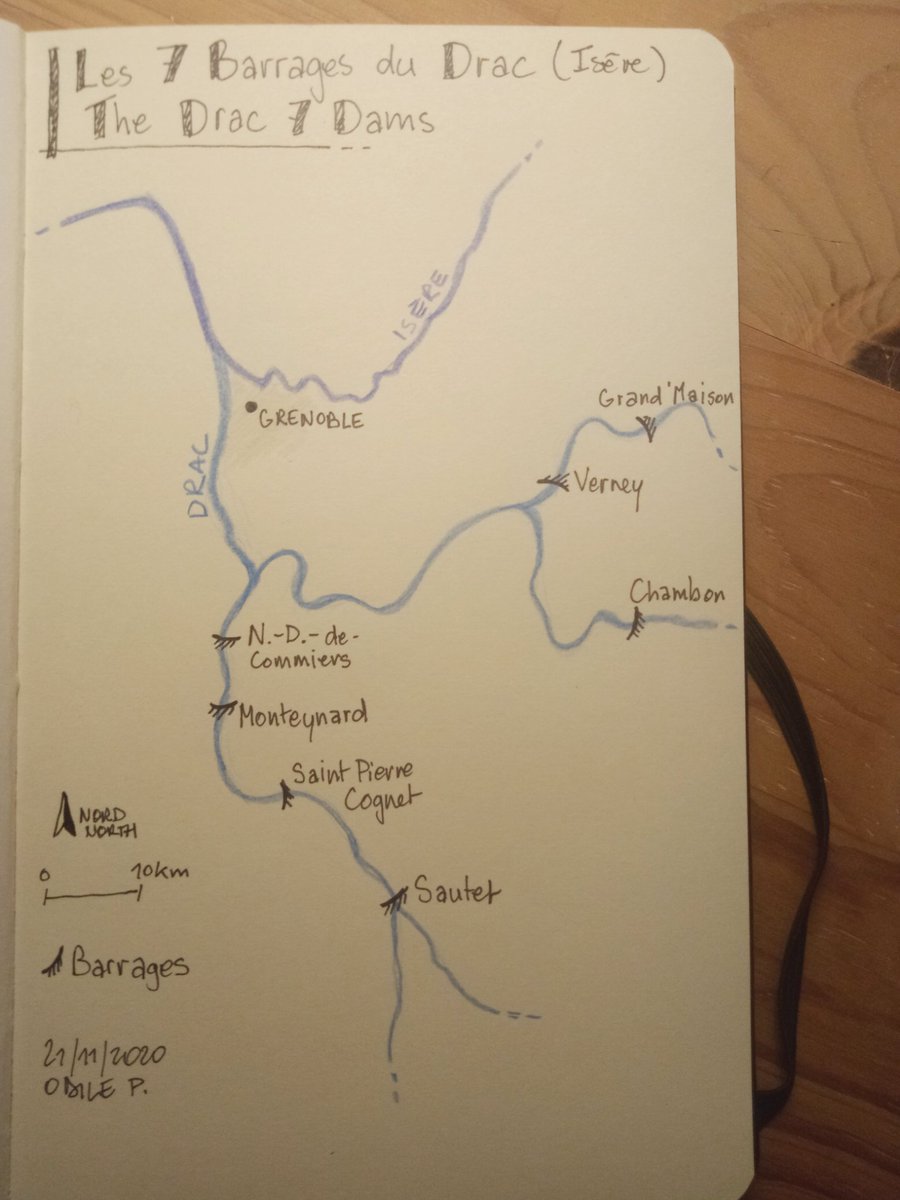 Les 7 Barrages du Drac (Isēre)
The Drac 7 Dams
ISÈRE
GRENOBLE
DRAC
Grand'Maison
Verney
Chambon
N.-D.-de-
Commiers
Monteynard
Saint Pierre
Cognet
Sautet
NORD
NORTH
0 10km
Barrages
21/11/2020
ODILE P.